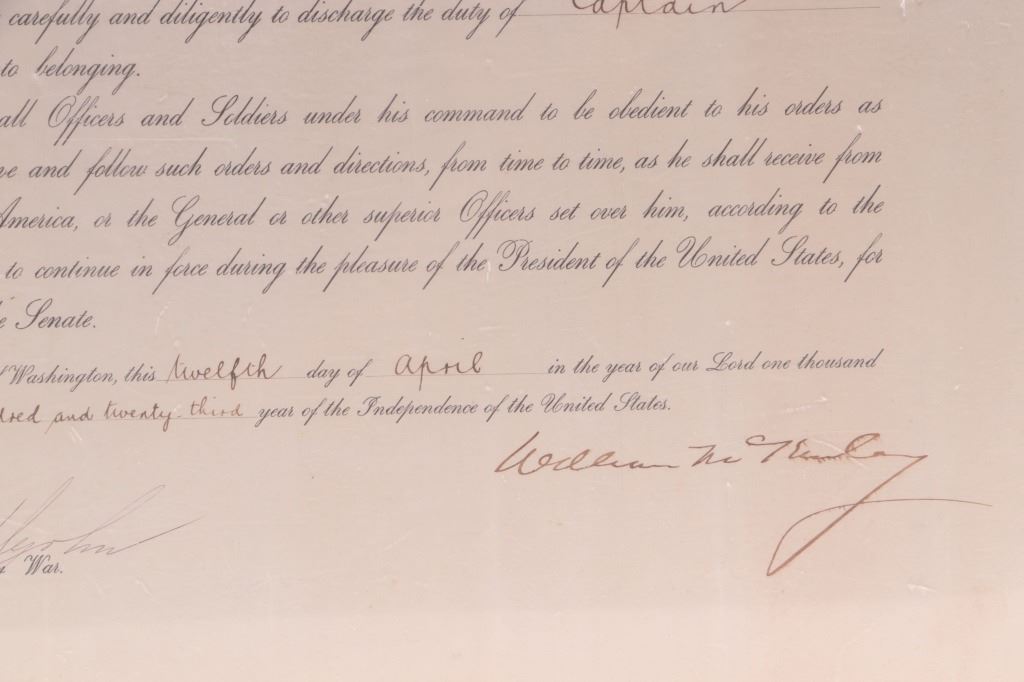 carefully and diligently to discharge the duty of Captain
to belonging.
all Officers and Soldiers under his command to be obedient to his orders as
ve and follow such orders and directions, from time to time, as he shall receive from
America, or the General or other superior Officers set over him, according to the
to continue in force during the pleasure of the President of the United States, for
e Senate.
Washington, this twelfth day of April in the year of our Lord one thousand
dred and twenty-third year of the Independence of the United States.
William McKinley
War.